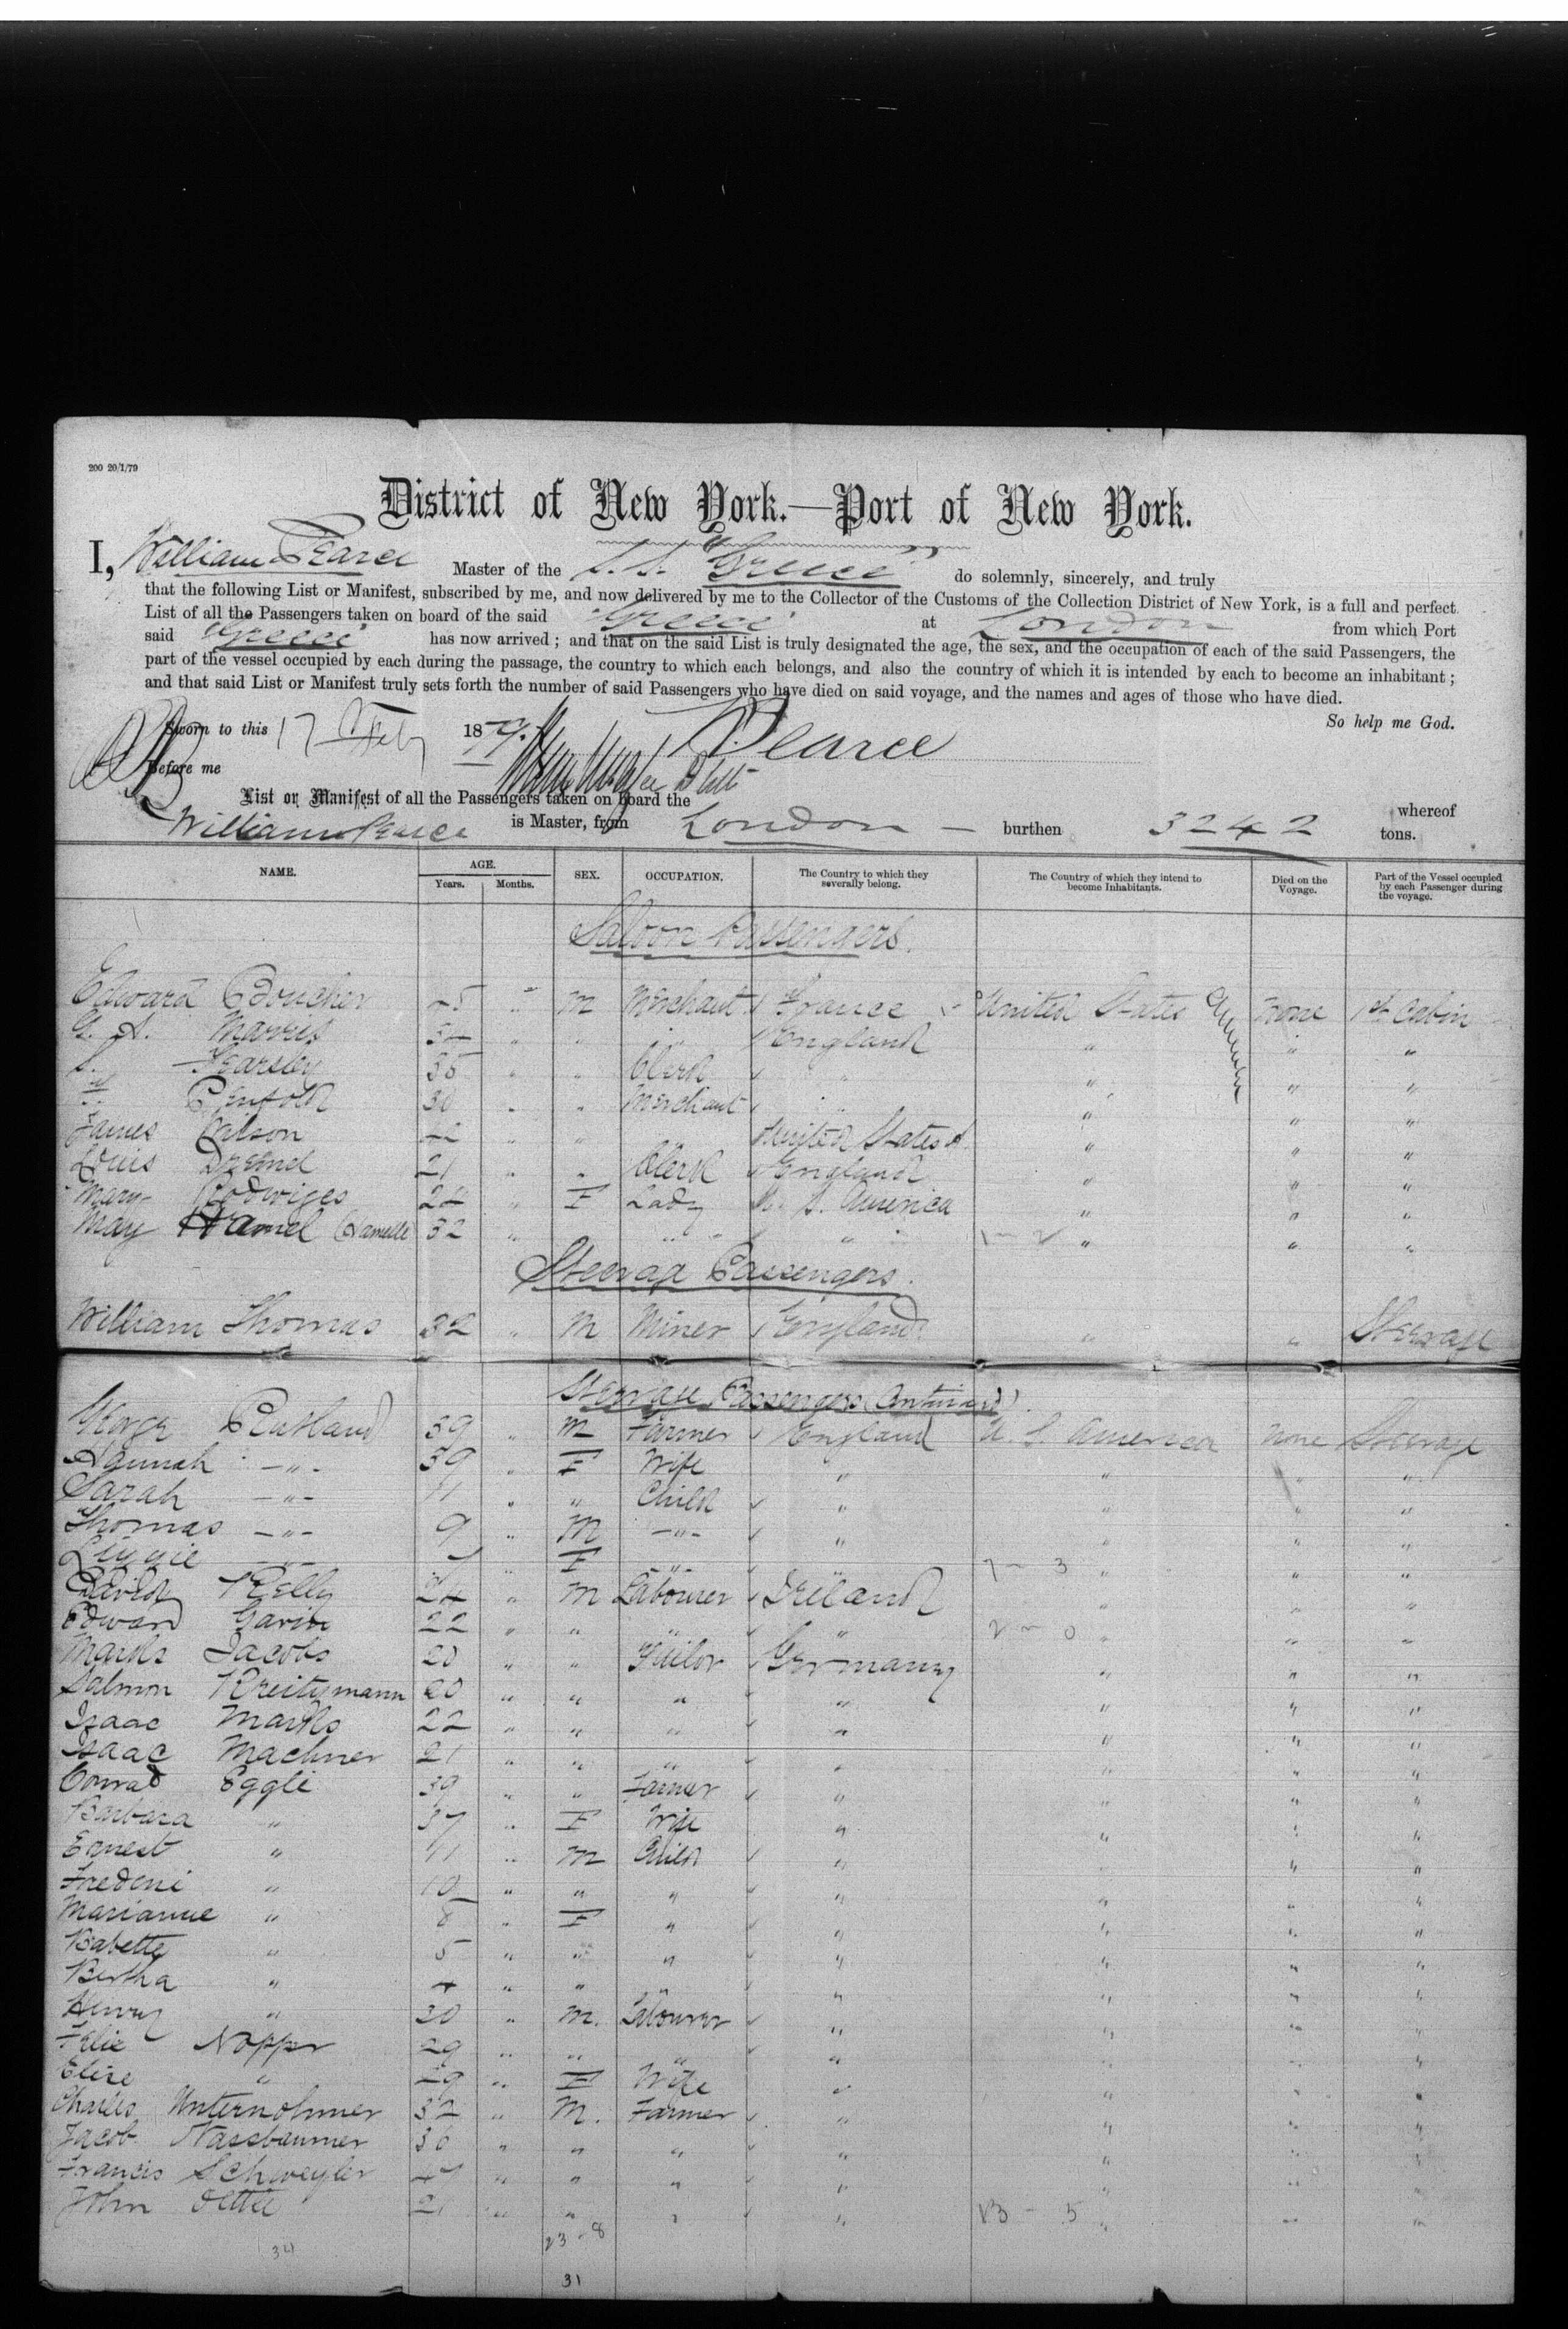 200 20/1/79
District of New York.—Port of New York.
I, William Pearce Master of the S. S. "Greece" do solemnly, sincerely, and truly
that the following List or Manifest, subscribed by me, and now delivered by me to the Collector of the Customs of the Collection District of New York, is a full and perfect
List of all the Passengers taken on board of the said Greece at London from which Port
said Greece has now arrived; and that on the said List is truly designated the age, the sex, and the occupation of each of the said Passengers, the
part of the vessel occupied by each during the passage, the country to which each belongs, and also the country of which it is intended by each to become an inhabitant;
and that said List or Manifest truly sets forth the number of said Passengers who have died on said voyage, and the names and ages of those who have died.
So help me God.
Sworn to this 17 Feby 1879. W Pearce
Before me
List or Manifest of all the Passengers taken on board the whereof
William Pearce is Master, from London burthen 3242 tons.
NAME. AGE. Years. Months. SEX. OCCUPATION. The Country to which they severally belong. The Country of which they intend to become Inhabitants. Died on the Voyage. Part of the Vessel occupied by each Passenger during the voyage.
Saloon Passengers.
Edward Boucher " M Merchant France United States None 1st Cabin
G. A. Morris " " " England " " "
S. Fearsley 35 " " Clerk " " " "
F. Penfold 30 " " Merchant " " " "
James Wilson 42 " " " United States A. " " "
Louis 21 " " Clerk England " " "
Mary Rodwiges 22 " F Lady U. S. America " " "
May Hamel (Hamelle) 32 " " " " 1 - 2 " " "
Steerage Passengers.
William Thomas 32 " M Miner England " " Steerage
Steerage Passengers (Continued)
George Rutland 39 " M Farmer England U. S. America None Steerage
Hannah -"- 39 " F Wife " " " "
Sarah -"- 11 " " Child " " " "
Thomas -"- 9 " M -"- " " " "
Lizzie -"- " F -"- " 7 - 3 " " "
David Kelly 24 " M Labourer Ireland " " "
Edward Gavin 22 " " " " 2 - 0 " " "
Marks Jacobs 20 " " Tailor Germany " " "
Salmon Kreitzmann 20 " " " " " " "
Isaac Marks 22 " " " " " " "
Isaac Machner 21 " " " " " " "
Conrad Eggli 39 " " Farmer " " " "
Barbara " 37 " F Wife " " " "
Ernest " 11 " M Child " " " "
Frederic " 10 " " " " " " "
Marianne " 8 " F " " " " "
Babette " 5 " " " " " " "
Bertha " 4 " " " " " " "
Henry " 30 " M. Labourer " " " "
Felix Nopper 29 " " " " " " "
Elise " 29 " F Wife " " " "
Charles Unternohmer 32 " M. Farmer " " " "
Jacob Nassbaumer 30 " " " " " " "
Francis Schweyler 47 " " " " " " "
John 21 " " " " 13 - 5 " " "
23 - 8
31